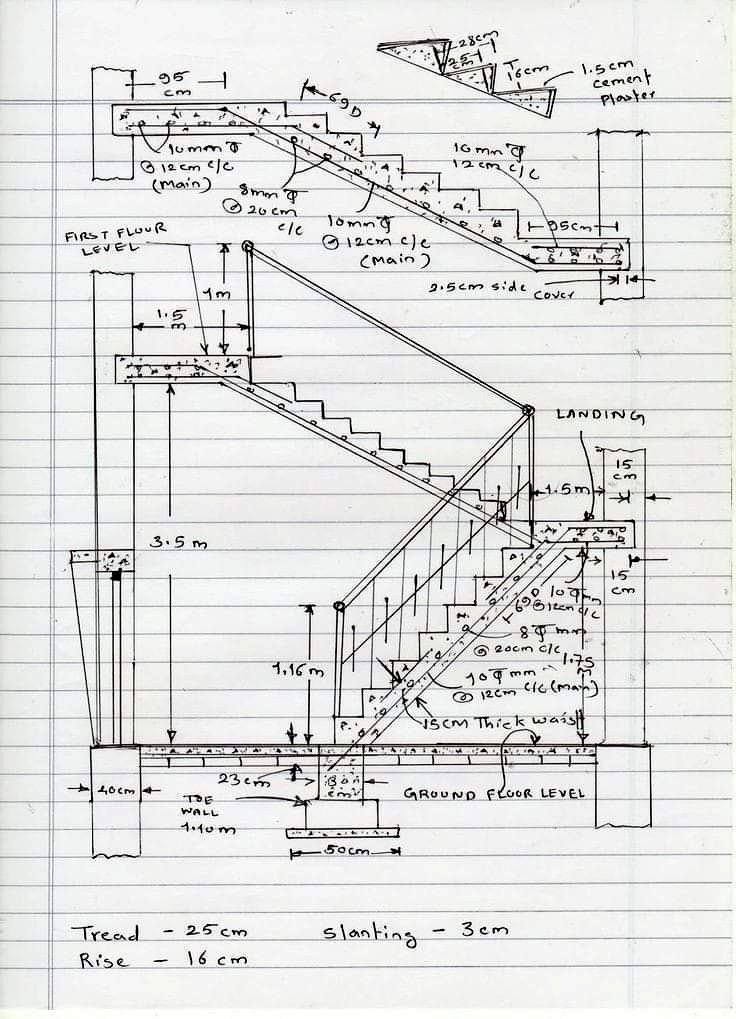 28cm
25
cm
16cm
1.5cm
cement
Plaster
95
cm
69D
10mm Φ
@ 12cm c/c
(main)
8mm Φ
@ 20cm
c/c
10mm Φ
@ 12cm c/c
(main)
10mm Φ
12cm c/c
95cm
2.5cm side
cover
FIRST FLOUR
LEVEL
1m
1.5
m
LANDING
15
cm
1.5m
3.5m
15
cm
69D
10 Φ mm
@ 12cm c/c
8 Φ mm
@ 20cm c/c
1.75
m
10 Φ mm
@ 12cm c/c (main)
1.16m
15CM Thick waist
23cm
40cm
TOE
WALL
1.10m
30
cm
GROUND FLOUR LEVEL
50cm
Tread - 25cm
Slanting - 3cm
Rise - 16cm